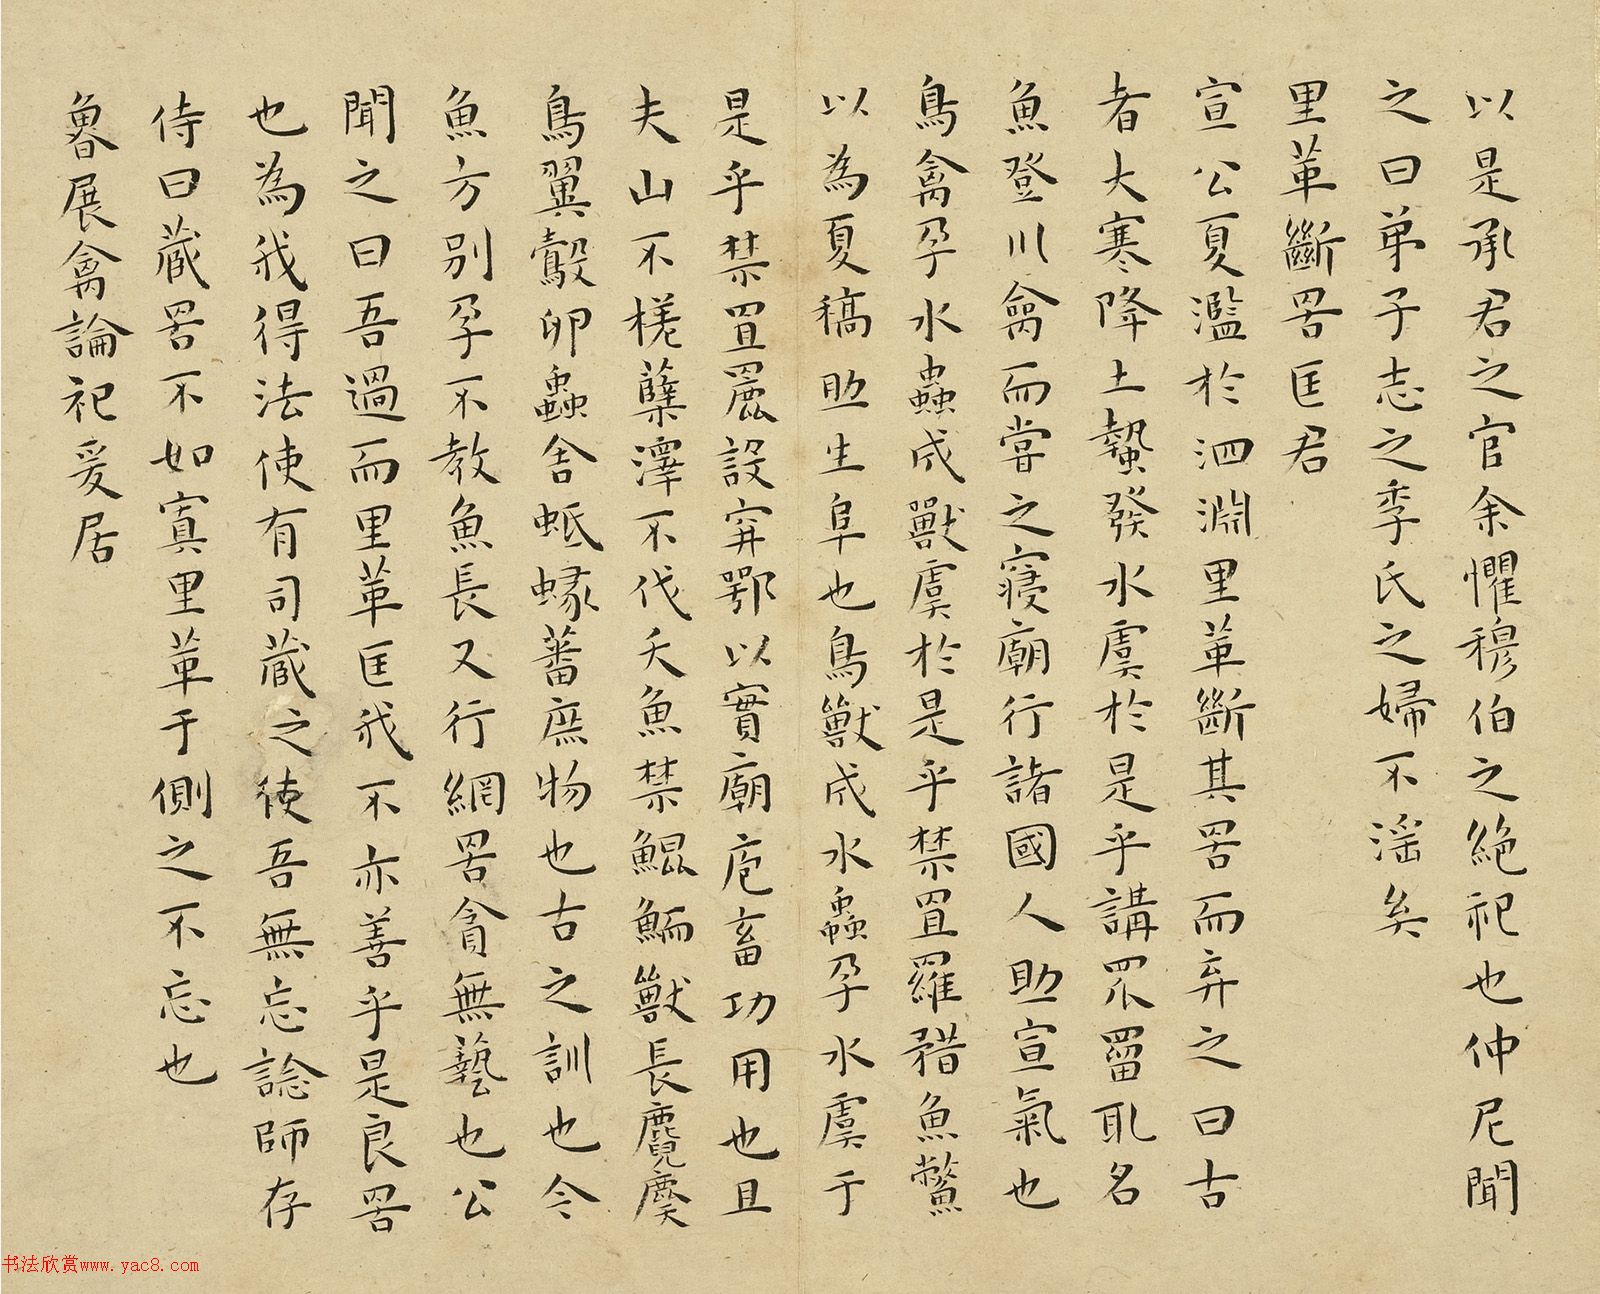 以是承君之官余懼穆伯之絕祀也仲尼聞
之曰弟子志之季氏之婦不淫矣
里革斷罟匡君
宣公夏濫於泗淵里革斷其罟而弃之曰古
者大寒降土蟄發水虞於是乎講罛罶取名
魚登川禽而嘗之寢廟行諸國人助宣氣也
鳥禽孕水蟲成獸虞於是乎禁罝羅矠魚鱉
以為夏犒助生阜也鳥獸成水蟲孕水虞于
是乎禁罝䍡設穽鄂以實廟庖畜功用也且
夫山不槎蘖澤不伐夭魚禁鯤鮞獸長麑麌
鳥翼鷇卵蟲舍蚳蝝蕃庶物也古之訓也今
魚方別孕不教魚長又行網罟貪無藝也公
聞之曰吾過而里革匡我不亦善乎是良罟
也為我得法使有司藏之使吾無忘諗師存
侍曰藏罟不如寘里革于側之不忘也
魯展禽論祀爰居
书法欣赏www.yac8.com